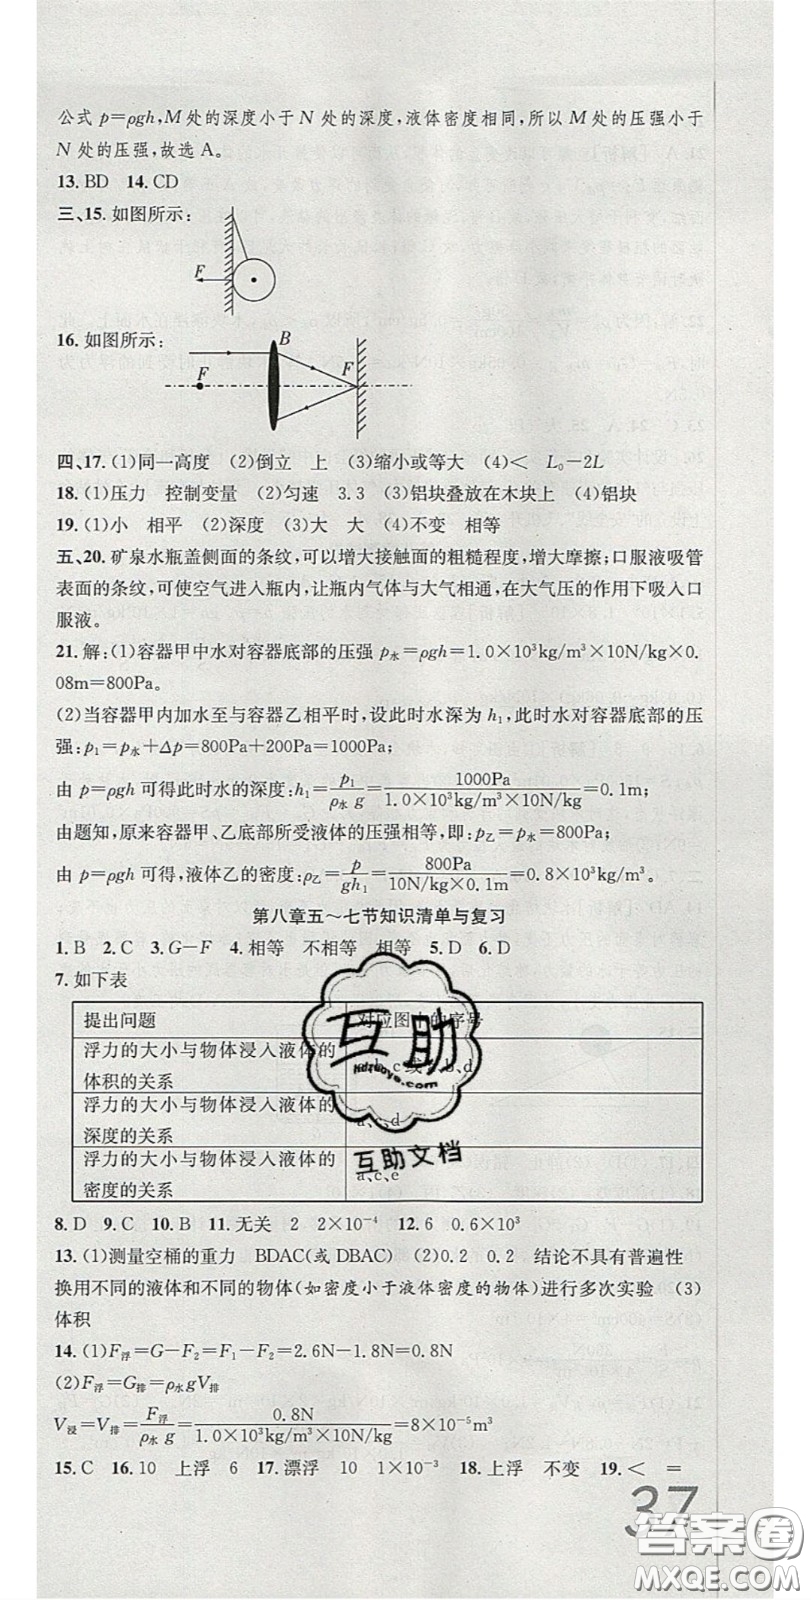 公式 p=ρgh,M 处的深度小于 N 处的深度,液体密度相同,所以 M 处的压强小于
N 处的压强,故选 A。
13. BD 14. CD
三、15. 如图所示:
F
16. 如图所示:
B
F
F
四、17. (1)同一高度 (2)倒立 上 (3)缩小或等大 (4)< L₀-2L
18. (1)压力 控制变量 (2)匀速 3.3 (3)铝块叠放在木块上 (4)铝块
19. (1)小 相平 (2)深度 (3)大 大 (4)不变 相等
五、20. 矿泉水瓶盖侧面的条纹,可以增大接触面的粗糙程度,增大摩擦;口服液吸管
表面的条纹,可使空气进入瓶内,让瓶内气体与大气相通,在大气压的作用下吸入口
服液。
21. 解:(1)容器甲中水对容器底部的压强 p水=ρgh=1.0×10³kg/m³×10N/kg×0.
08m=800Pa。
(2)当容器甲内加水至与容器乙相平时,设此时水深为 h₁,此时水对容器底部的压
强:p₁=p水+Δp=800Pa+200Pa=1000Pa;
由 p=ρgh 可得此时水的深度:h₁=p₁/ρ水 g=1000Pa/1.0×10³kg/m³×10N/kg=0.1m;
由题知,原来容器甲、乙底部所受液体的压强相等,即:p乙=p水=800Pa;
由 p=ρgh 可得,液体乙的密度:ρ乙=p/gh₁=800Pa/10N/kg×0.1m=0.8×10³kg/m³。
第八章五～七节知识清单与复习
1. B 2. C 3. G-F 4. 相等 不相等 相等 5. D 6. D
7. 如下表
提出问题 对应图中的序号
浮力的大小与物体浸入液体的 a、b、c或a、b、d
体积的关系
浮力的大小与物体浸入液体的 a、c、d
深度的关系
浮力的大小与物体浸入液体的 a、c、e
密度的关系
互助
hdzuoye.com
互助文档
8. D 9. C 10. B 11. 无关 2 2×10⁻⁴ 12. 6 0.6×10³
13. (1)测量空桶的重力 BDAC(或 DBAC) (2)0.2 0.2 结论不具有普遍性
换用不同的液体和不同的物体(如密度小于液体密度的物体)进行多次实验 (3)
体积
14. (1)F浮=G-F₂=F₁-F₂=2.6N-1.8N=0.8N
(2)F浮=G排=ρ水gV排
V浸=V排=F浮/ρ水 g=0.8N/1.0×10³kg/m³×10N/kg=8×10⁻⁵m³
15. C 16. 10 上浮 6 17. 漂浮 10 1×10⁻³ 18. 上浮 不变 19. < =
37
答案圈
MXQE.COM